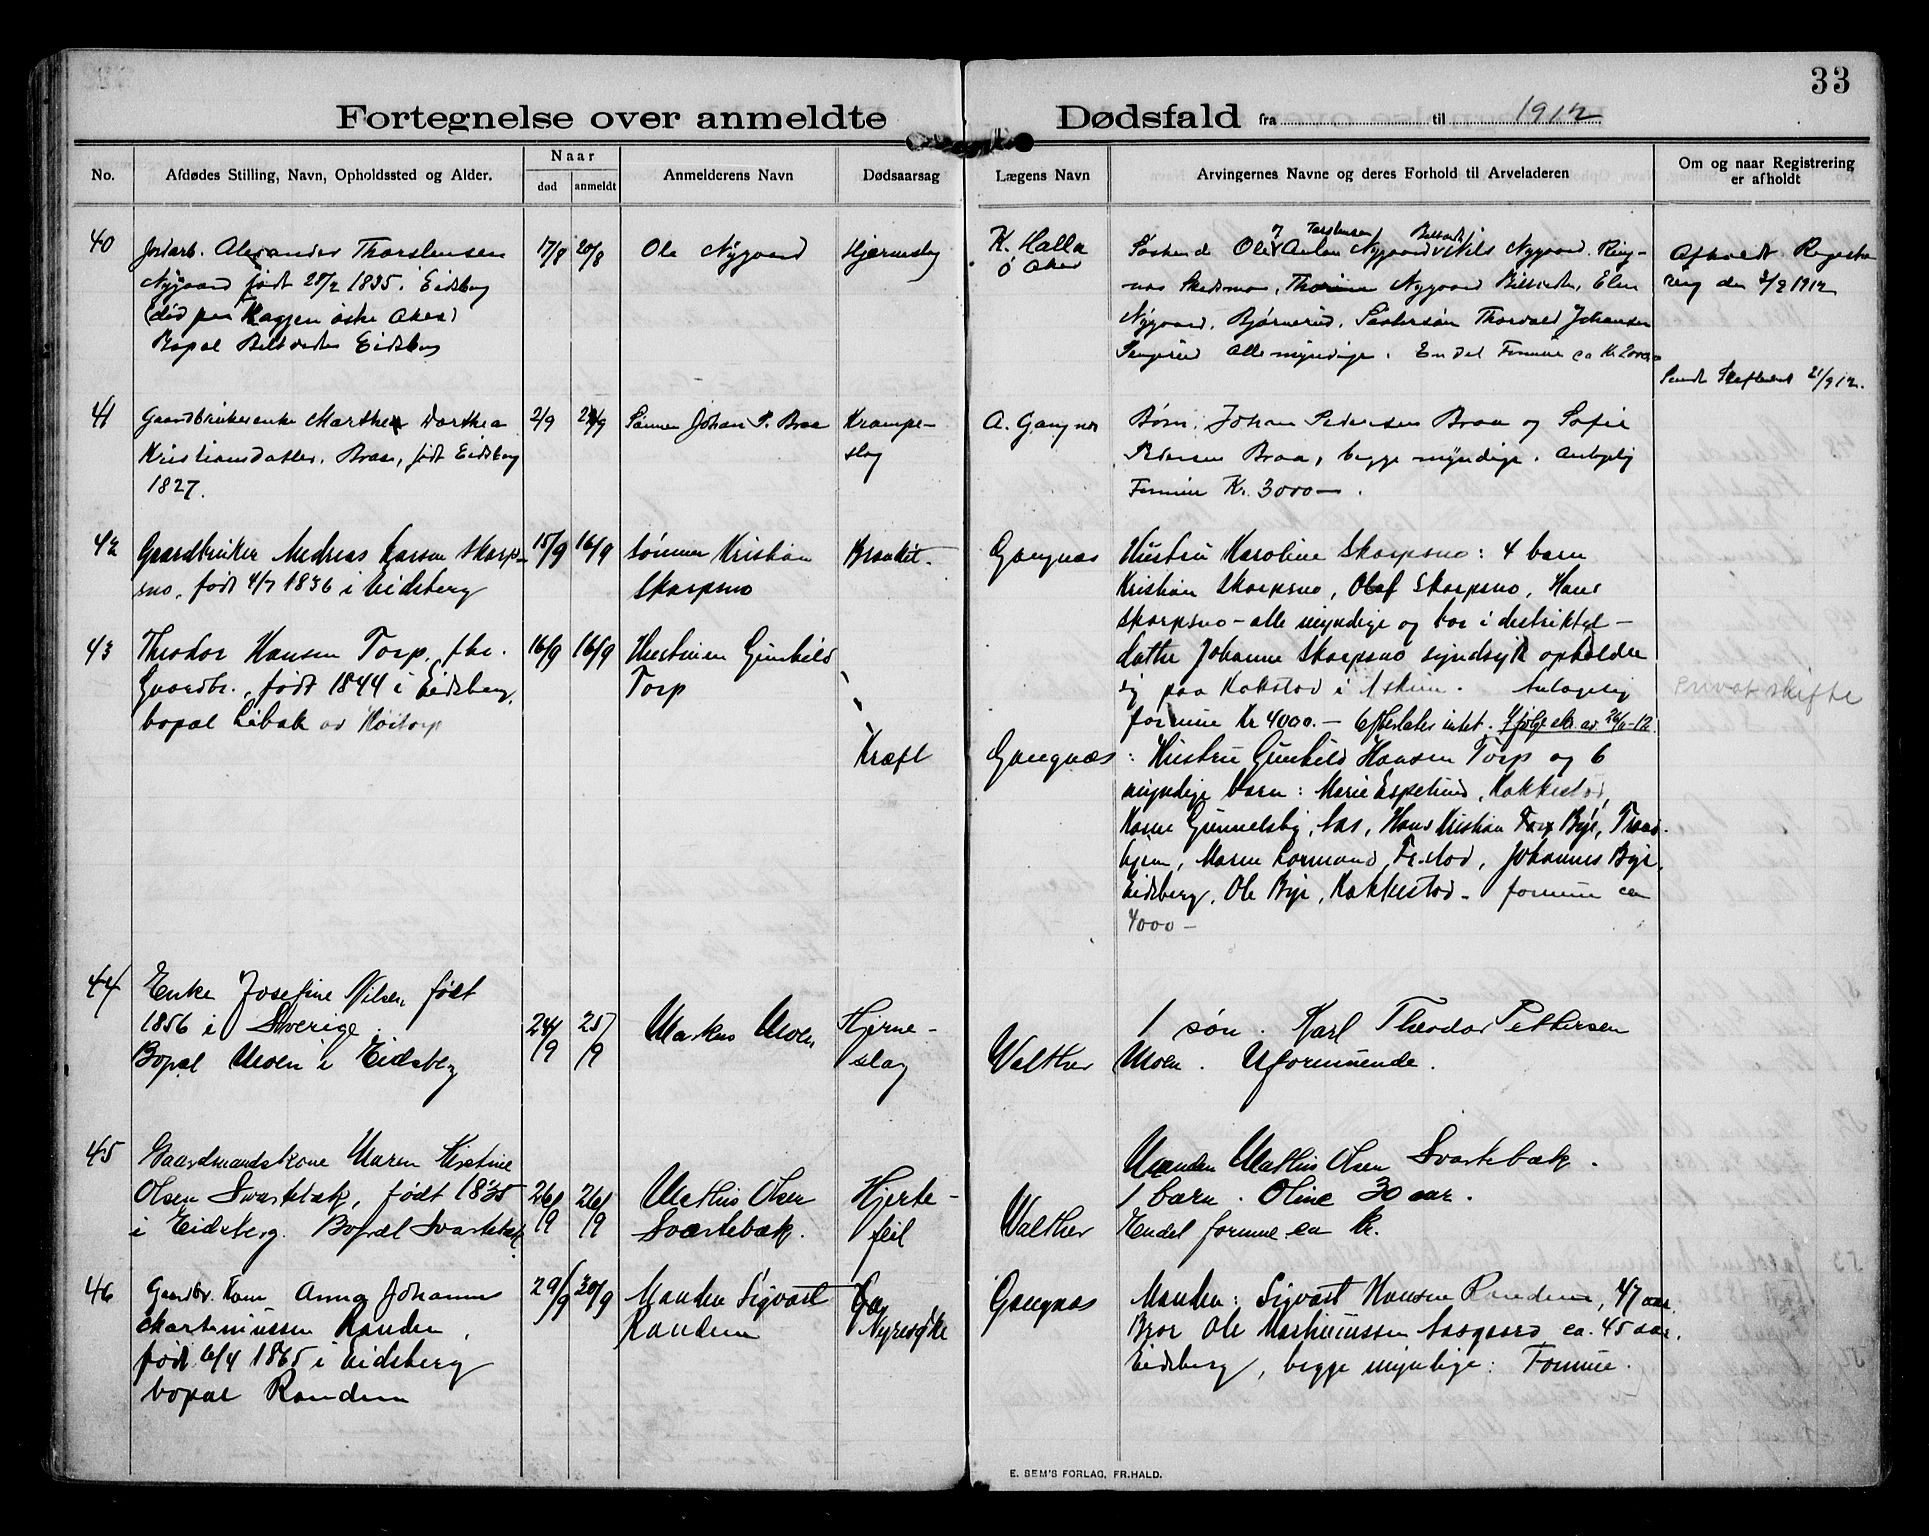 33
Fortegnelse over anmeldte Dødsfald fra til 1912
No.
Afdødes Stilling, Navn, Opholdssted og Alder.
Naar
død
anmeldt
Anmelderens Navn
Dødsaarsag
Lægens Navn
Arvingernes Navne og deres Forhold til Arveladeren
Om og naar Registrering
er afholdt
40
Jordarb. Alexander Thorstensen
Nygaard født 28/2 1835. Eidsberg
(død paa østre Aker)
Bopæl Eidsberg
17/8
20/8
Ole Nygaard
Hjerneslag
K. Halla
Ø Aker
Torstensen
Søskende Ole, Anton Nygaard Nils Nygaard.
Skedsmo, Nygaard Elen
Nygaard, Bjørnerud, Søstersøn Thorvald Johansen
alle myndige. En del Formue ca Kr. 2000
Afholdt Registre
ring den 3/9 1912
Sendt 21/9 12.
41
Gaardbrukerenke Marthe Dorthea
Kristiansdatter. Braa, født Eidsberg
1827.
2/9
Sønnen Johan P. Braa
Krampe-
slag
A. Gangnæs
Børn. Johan Pedersen Braa og Sofie
Pedersen Braa, begge myndige. Antagelig
Formue Kr. 3000 —.
42
Gaardbruker Andreas Larsen Skorps-
sno, født 4/7 1836 i Eidsberg
15/9
16/9
Sønnen Kristian
Skorpsno
Bronkit.
Gangnæs
Hustru Karoline Skorpsno: 4 barn
Kristian Skorpsno, Olaf Skorpsno, Hans
Skorpsno – alle myndige og bor i distriktet –
datter Johanne Skorpsno sindsyk opholder
sig paa Kakstad i Askim. Antagelig
formue Kr 4000. – Efterlater intet. Ifølge skr. av 26/11-12.
privat skifte
43
Theodor Hansen Torp, fhv.
Gaardbr., født 1844 i Eidsberg,
bopæl Libak av Høitorp
16/9
16/9
Hustruen Gunhild
Torp
Kræft
Gangnæs
: Hustru Gunhild Hansen Torp og 6
myndige barn: Marie Espelund, Kakkestad,
Karne Gunnelsby, Aas, Hans Kristian Byr, Trond-
hjem, Maren Lormand, Fr.stad, Johannes Byr,
Eidsberg, Ole Byr, Kakkestad – formue ca
4000 –
44
Enke Josefine Nilsen født
1856 i Sverige.
Bopæl Moen i Eidsberg
24/9
25/9
Markus Moen
Hjerne-
slag
Walther
1 søn. Karl Theodor Pettersen
Moen. Uformuende.
45
Gaardmandskone Maren Kirstine
Olsen Svartebæk, født 1835
i Eidsberg. Bopæl Svartebæk.
26/9
26/9
Mathis Olsen
Svartebæk.
Hjerte-
feil
Walther
Manden Mathis Olsen Svartebæk.
1 barn. Oline 30 aar.
Endel formue ca kr.
46
Gaardbr. Kone Anna Johanne
Martiniussen Randem,
født 6/4 1865 i Eidsberg
bopæl Randem
29/9
30/9
Manden Sigvart
Randem
Nyresyke
Gangnæs
Manden: Sigvart Hansen Randem, 47 aar.
Bror Ole Martiniussen Aasgaard ca. 45 aar,
Eidsberg, begge myndige: Formue.
E. SEM'S FORLAG, FR.HALD.